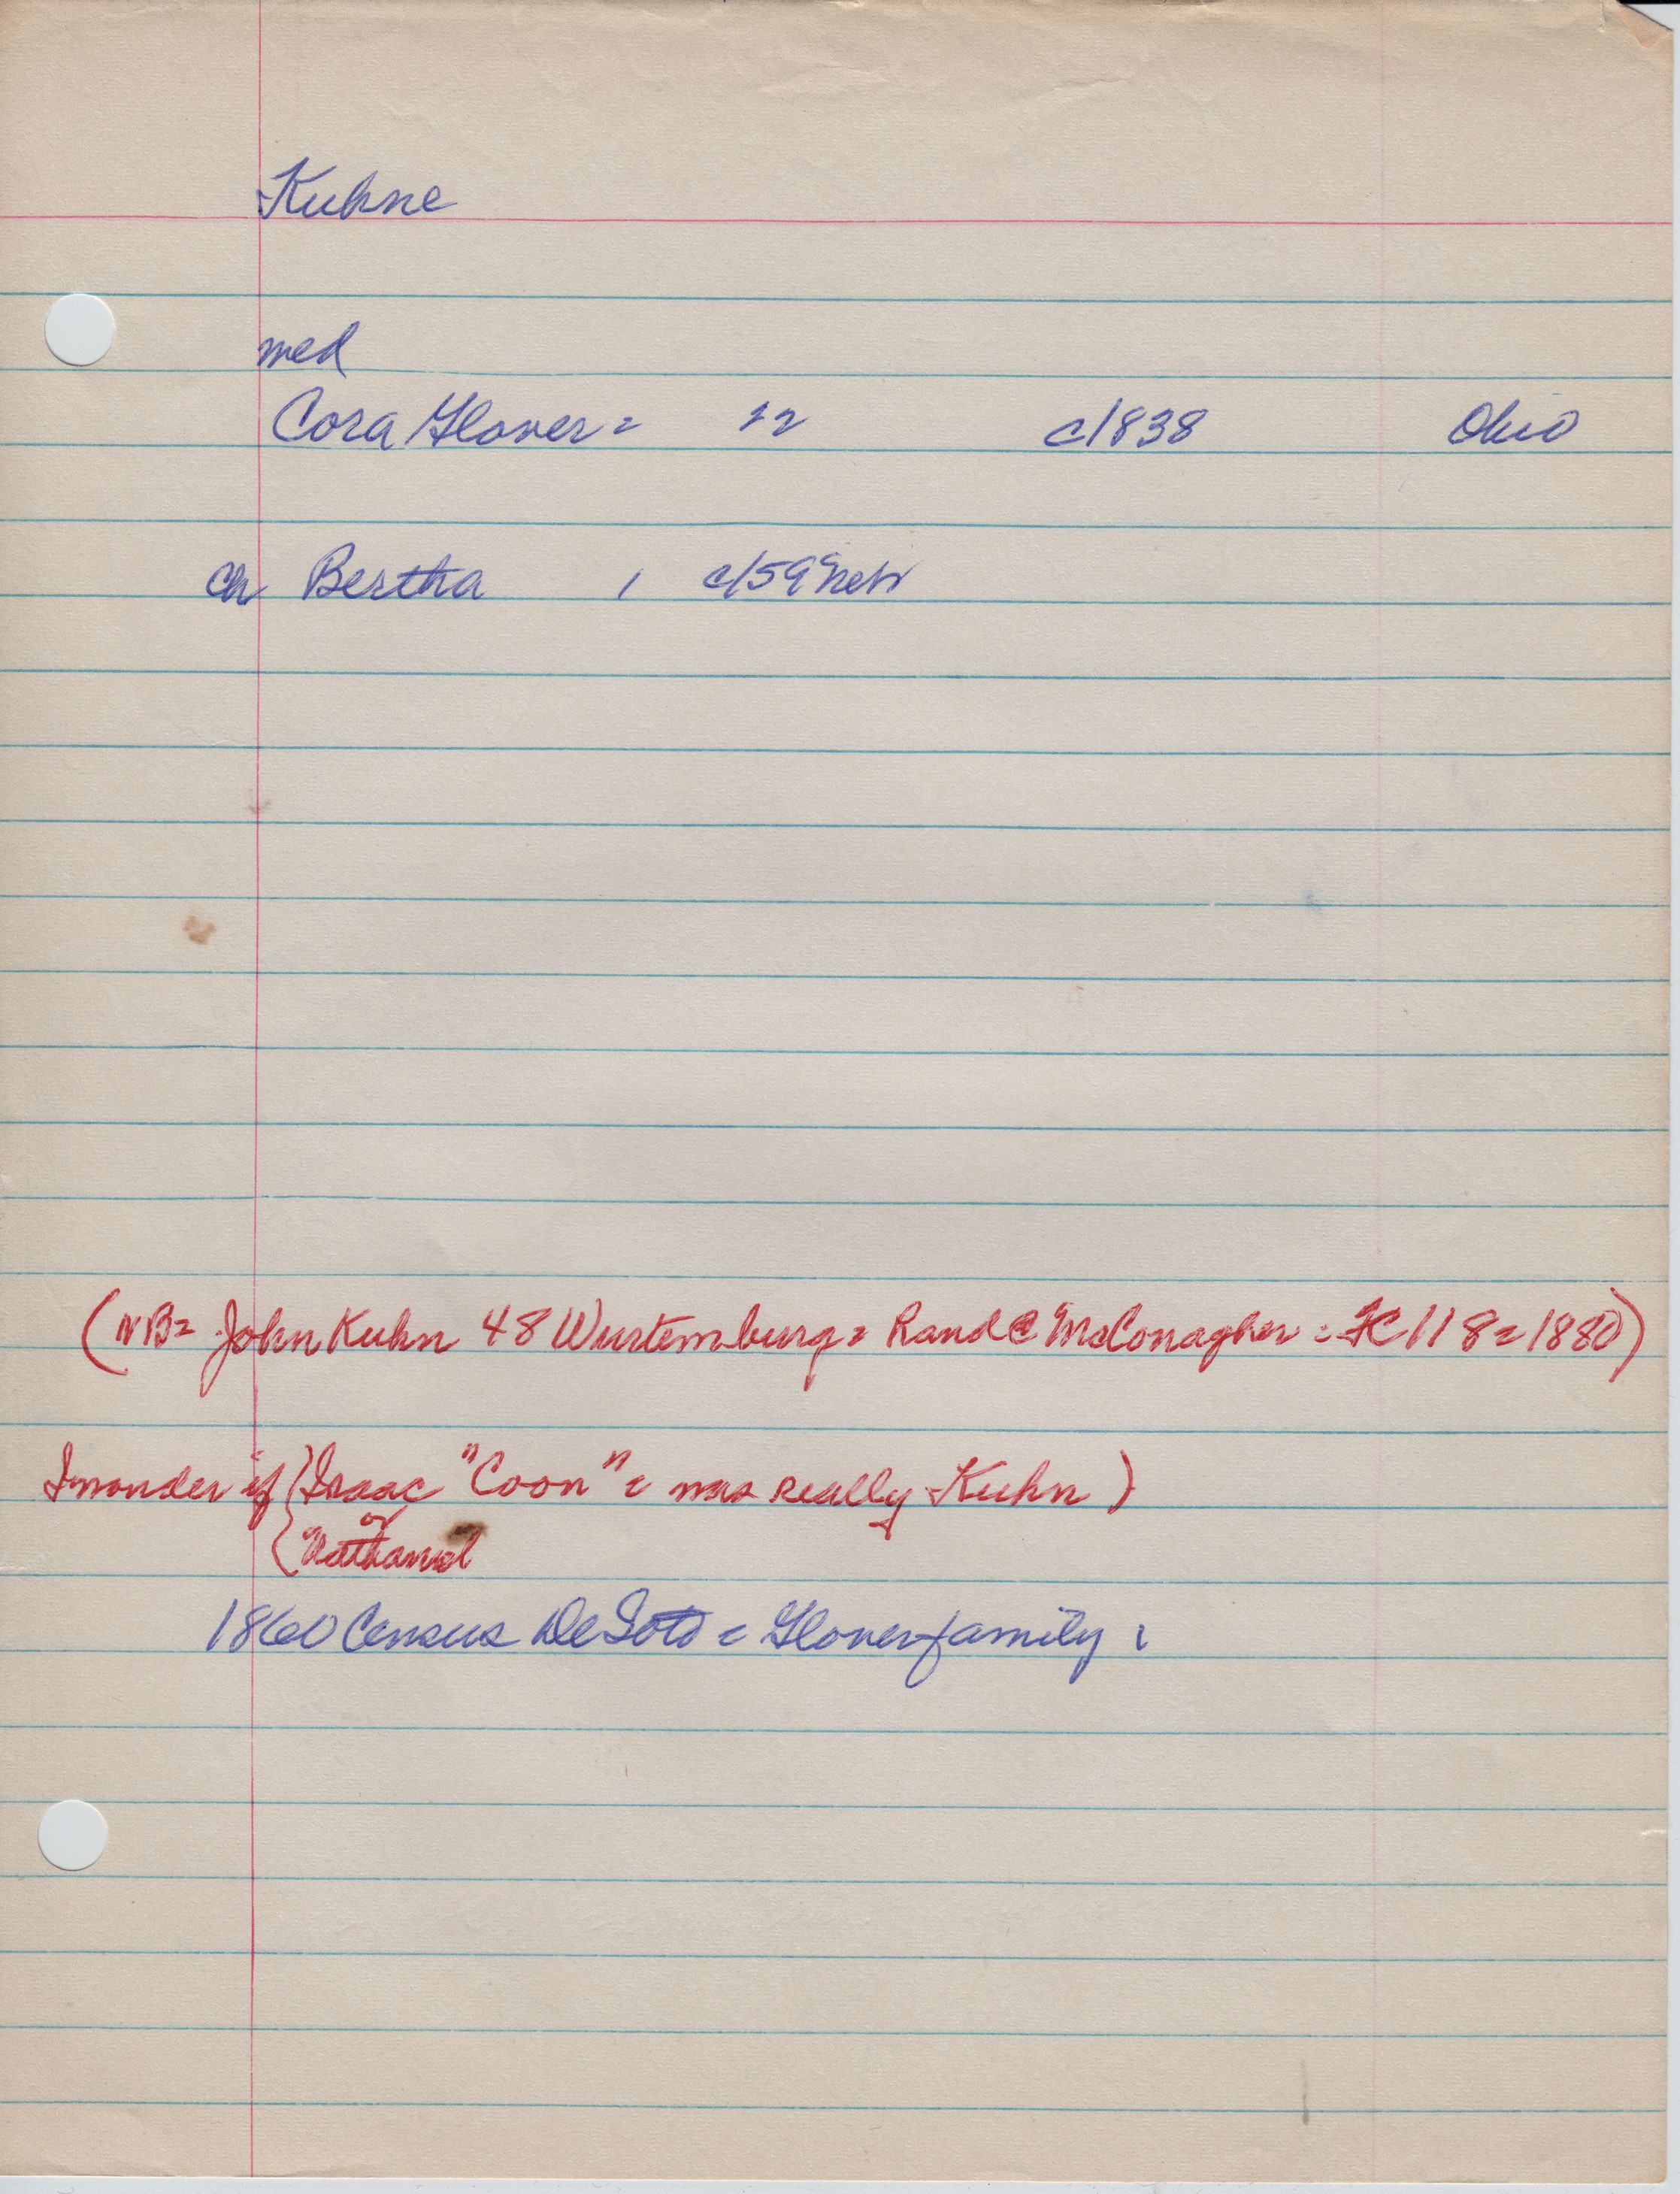 Kuhne
med
Cora Glover = 22 c/1838 Ohio
ch Bertha 1 c/59 Neb
(NB= John Kuhn 48 Wurtemburg = Rand @ McConagher = FC 118 = 1880)
I wonder if (Isaac "Coon" = was really Kuhn)
or
(Nathaniel
1860 Census DeSoto = Glover family :